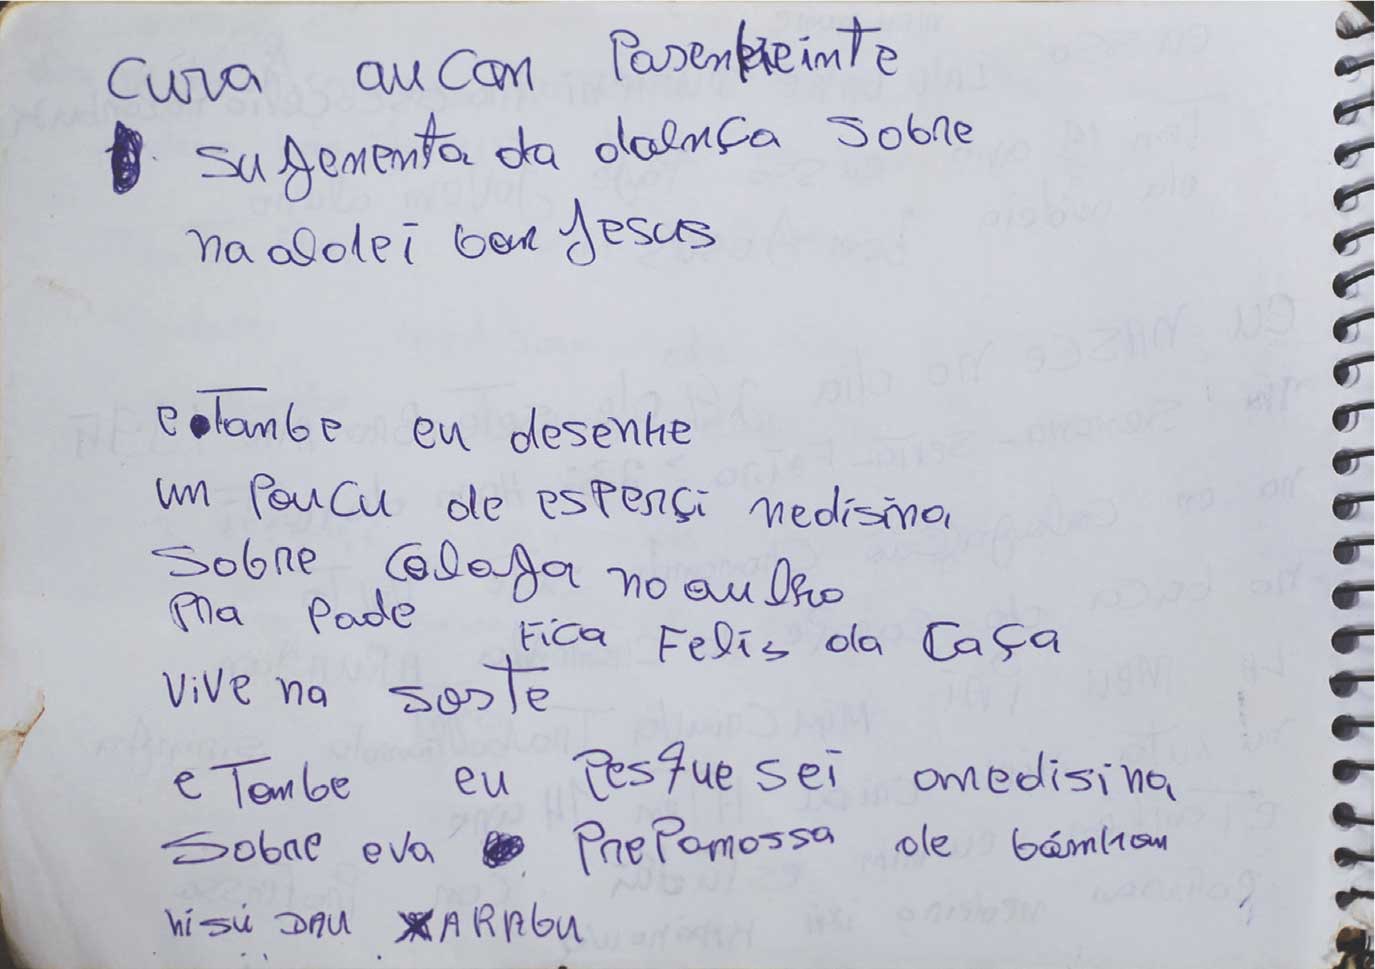 Cura au can Pasenteinte
sufementa da doença sobre
na adolei bon Jesus
e tambe eu desenhe
um poucu de esperçi nedisina
sobre Colaga no aulho
Pra Pade Fica Felis da Caça
Vive na soste
e Tambe eu Pesque sei omedisina
Sobre eva PrePamossa de bámham
hisú DAU XARABU